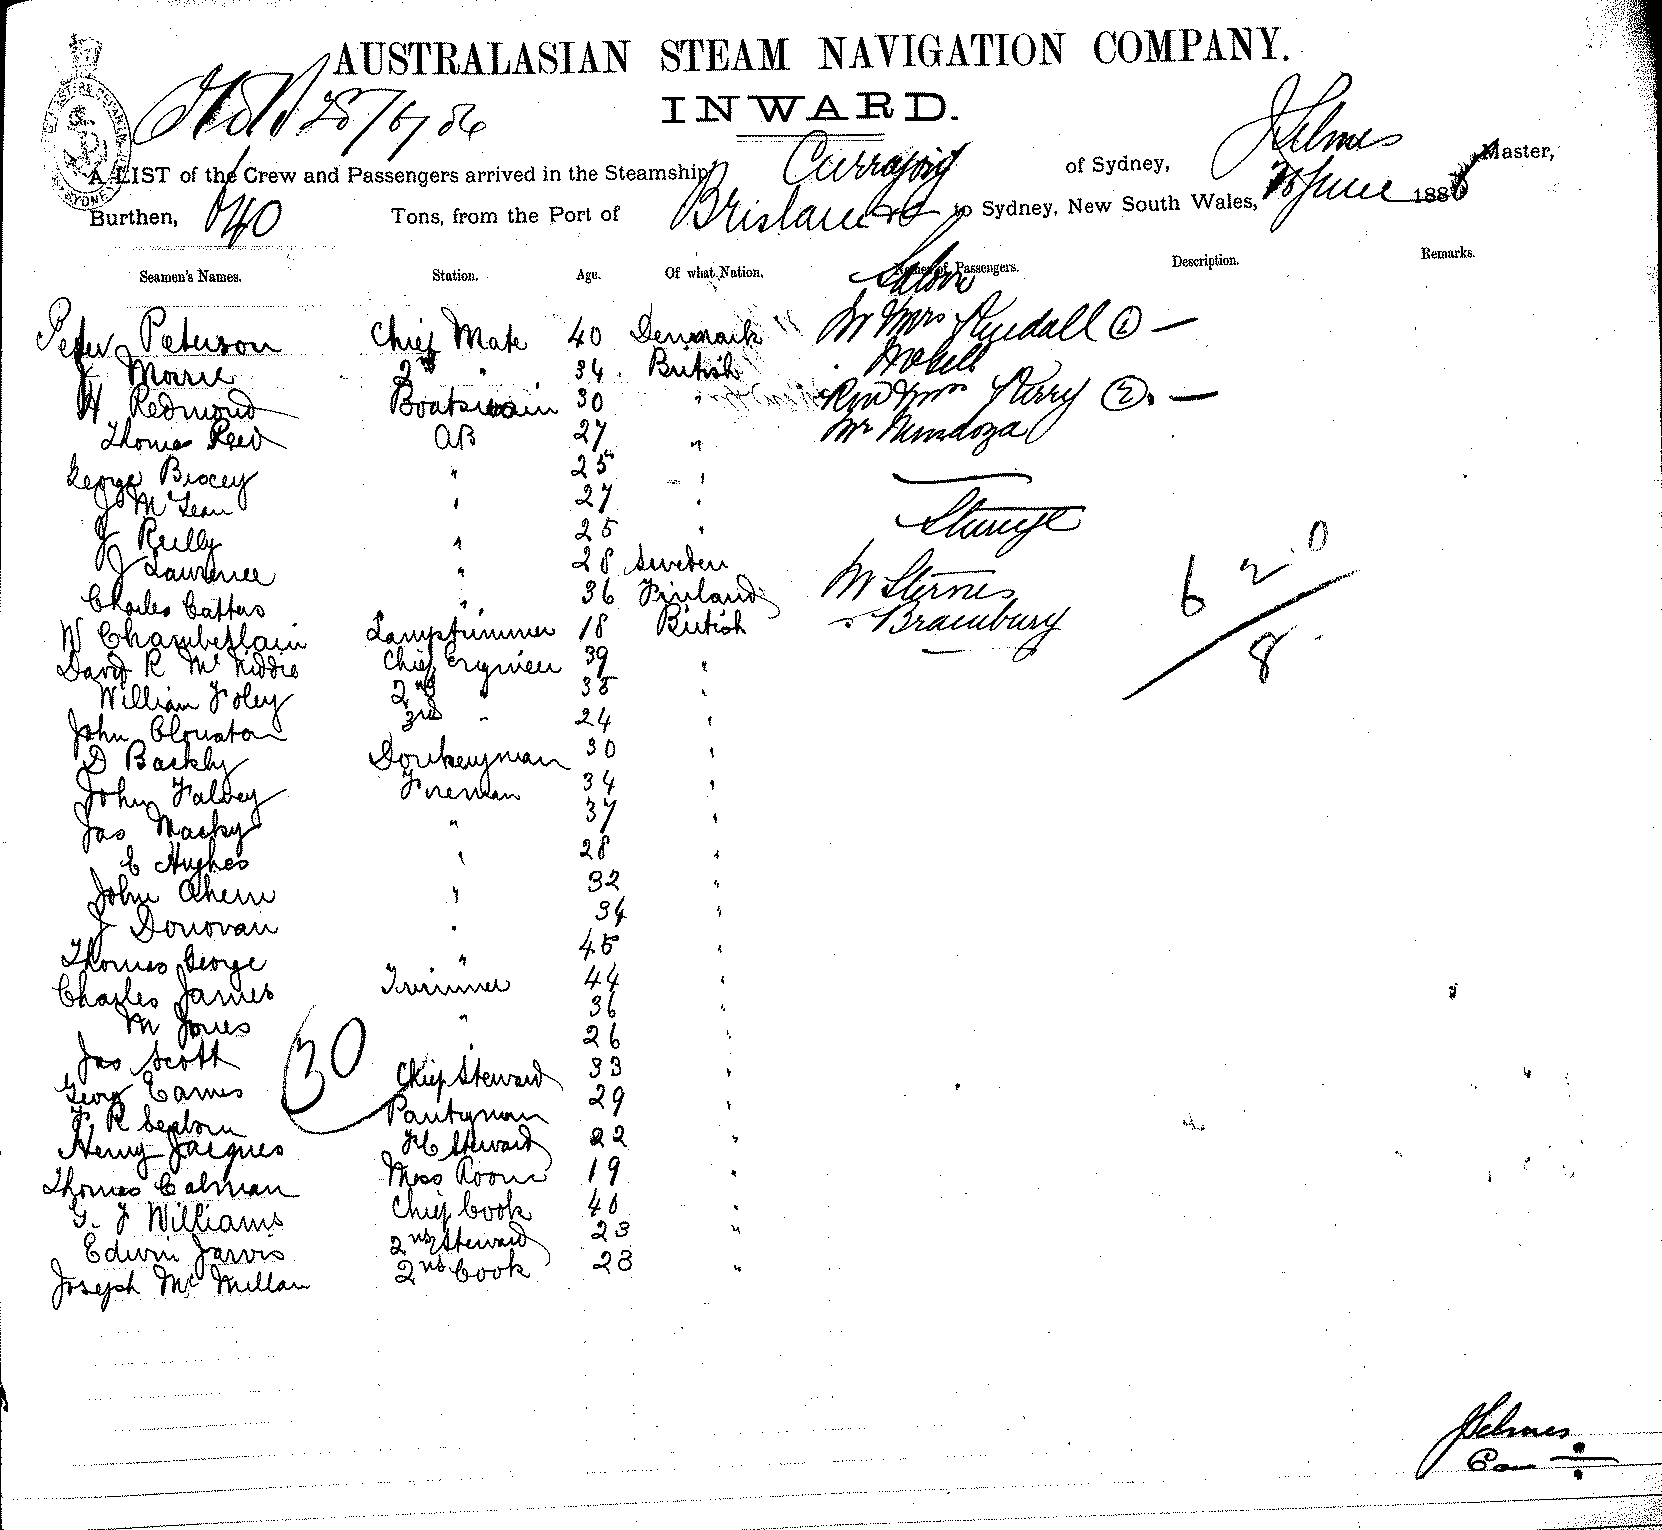 AUSTRALASIAN STEAM NAVIGATION COMPANY.
INWARD.
A LIST of the Crew and Passengers arrived in the Steamship of Sydney, J Selmes Master,
Burthen, 640 Tons, from the Port of Brisbane to Sydney, New South Wales, 28 June 1886
Seamen's Names. Station. Age. Of what Nation. Names of Passengers. Description. Remarks.
Saloon
Peter Peterson Chief Mate 40 Denmark Mr Mrs Kendall (2) —
Morris 2nd " 34 British
H Redmond Boatswain 30 " Rev Mrs Perry (2) —
Thomas Reed AB 27 " Mr Mendoza
George 25 "
J McLean " 27 "
J Reilly " 25 " Steerage
J Lawrence " 28 Sweden
Charles " 36 Finland Mr
W Chamberlain Lamptrimmer 18 British Brambury
David R Chief Engineer 39 "
William Foley 2nd " 35 "
John Clouston 3rd " 24 "
D Donkeyman 30 "
John Falvey Fireman 34 "
Jas Macky " 37 "
E Hughes " 28 "
John Ahern " 32 "
J Donovan " 34 "
Thomas George " 45 "
Charles James Trimmer 44 "
M Jones " 36 "
Jas Scott " 26 "
George Eames Chief Steward 33 "
F. R Pantryman 29 "
Henry Jacques Steward 22 "
Thomas Calman Mess Room 19 "
G. J Williams Chief Cook 40 "
Edwin Jarvis 2nd Steward 23 "
Joseph McMillan 2nd Cook 23 "
30
6 2 0
8
J Selmes